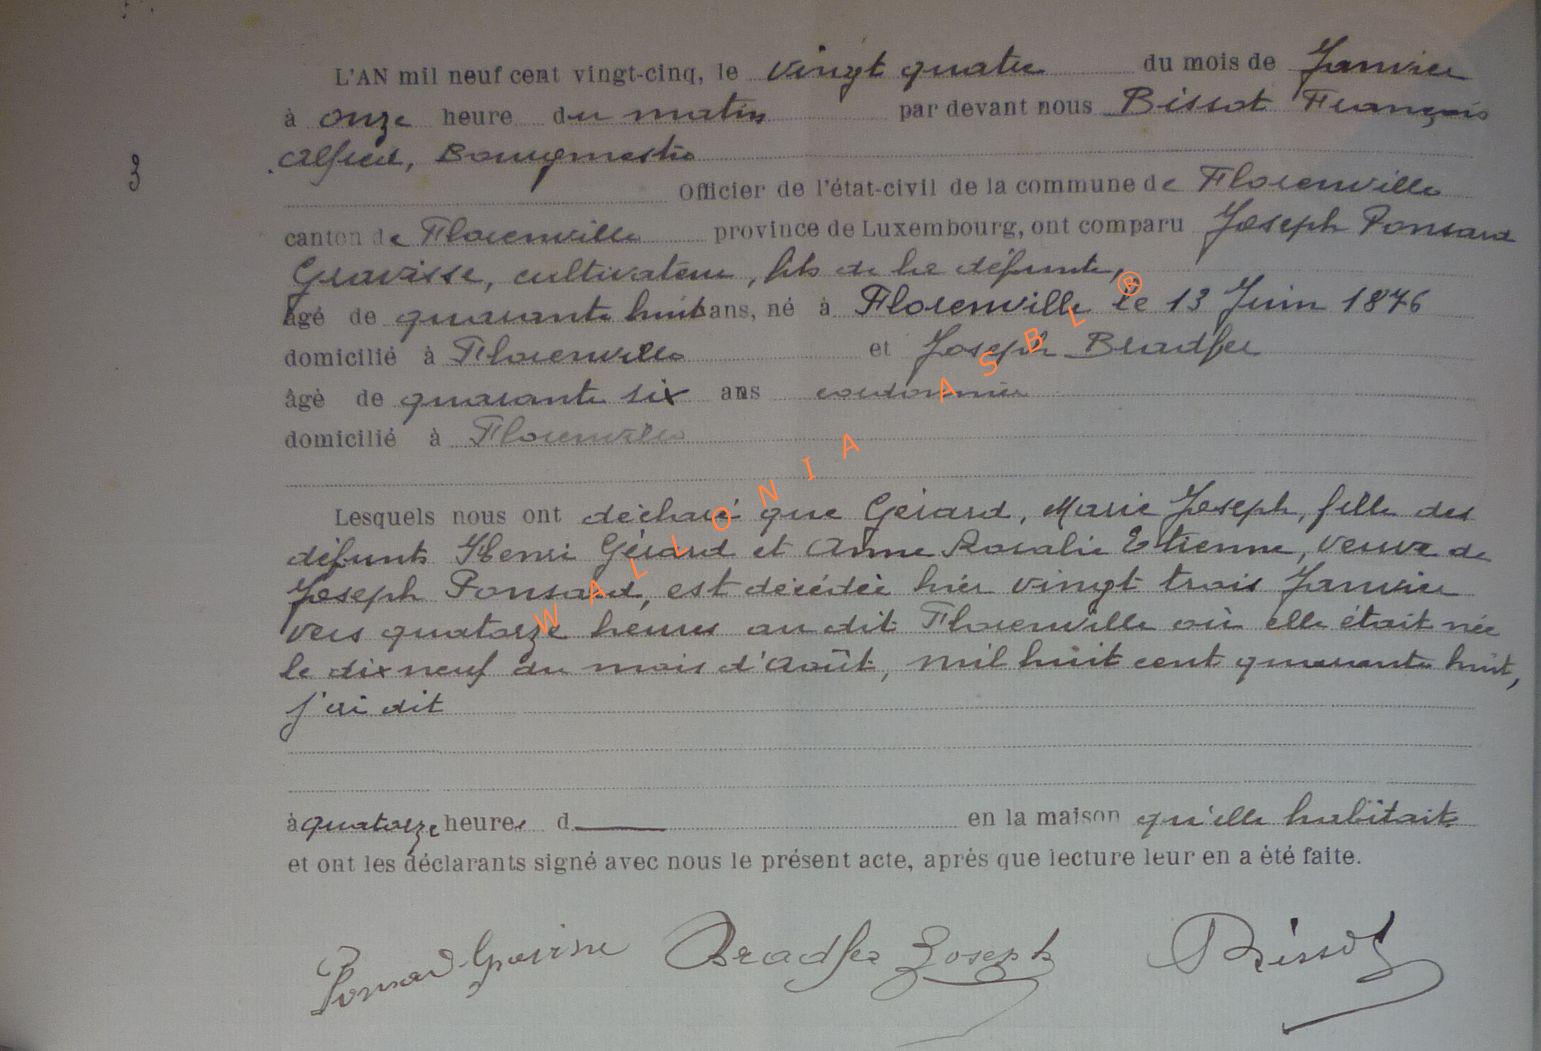 L'AN mil neuf cent vingt-cinq, le vingt quatre du mois de Janvier
à onze heure du matin par devant nous Bissot François
Alfred, Bourgmestre
3
Officier de l'état-civil de la commune de Florenville
canton de Florenville province de Luxembourg, ont comparu Joseph Ponsard
Gravisse, cultivateur, fils de la défunte,
âgé de quarante huit ans, né à Florenville le 13 Juin 1876
domicilié à Florenville et Joseph Bradfer
âgé de quarante six ans cordonnier
domicilié à Florenville
Lesquels nous ont déclaré que Gérard, Marie Joseph, fille des
défunts Henri Gérard et Anne Rosalie Etienne, veuve de
Joseph Ponsard, est décédée hier vingt trois Janvier
vers quatorze heures au dit Florenville où elle était née
le dix neuf du mois d'Août, mil huit cent quarante huit,
j'ai dit
à quatorze heures d en la maison qu'elle habitait
et ont les déclarants signé avec nous le présent acte, après que lecture leur en a été faite.
Ponsard-Gravisse Bradfer Joseph Bissot
WALLONIA ASBL ®